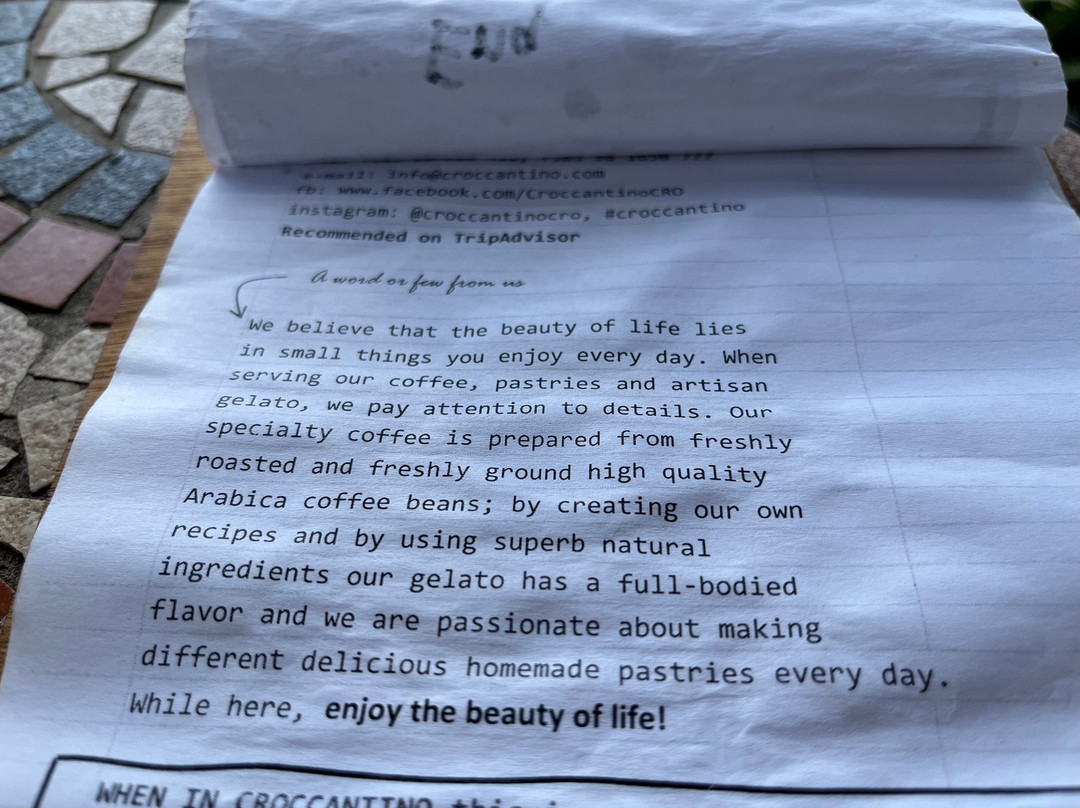 e-mail: info@croccantino.com
fb: www.facebook.com/CroccantinoCRO
instagram: @croccantinocro, #croccantino
Recommended on TripAdvisor
A word or few from us
We believe that the beauty of life lies
in small things you enjoy every day. When
serving our coffee, pastries and artisan
gelato, we pay attention to details. Our
specialty coffee is prepared from freshly
roasted and freshly ground high quality
Arabica coffee beans; by creating our own
recipes and by using superb natural
ingredients our gelato has a full-bodied
flavor and we are passionate about making
different delicious homemade pastries every day.
While here, enjoy the beauty of life!
WHEN IN CROCCANTINO